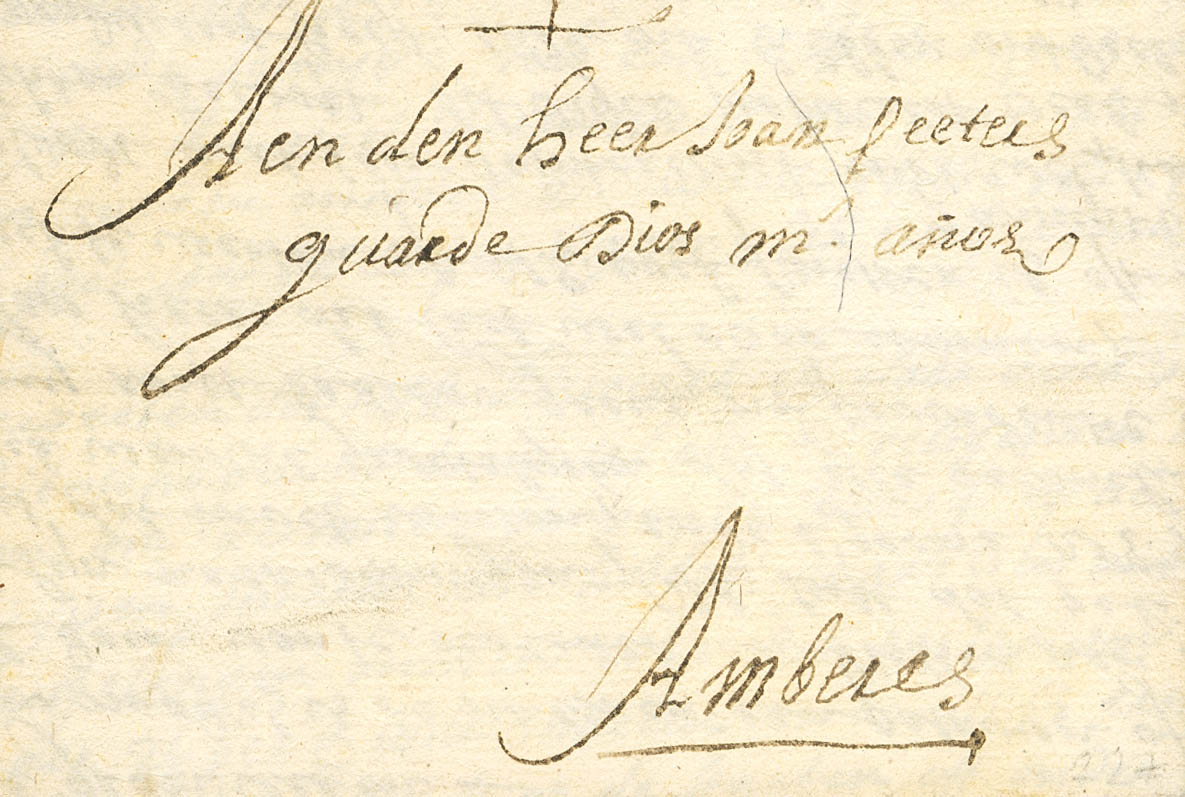 Aen den heer Joan peeters
guarde Dios m.s años
Amberes
227